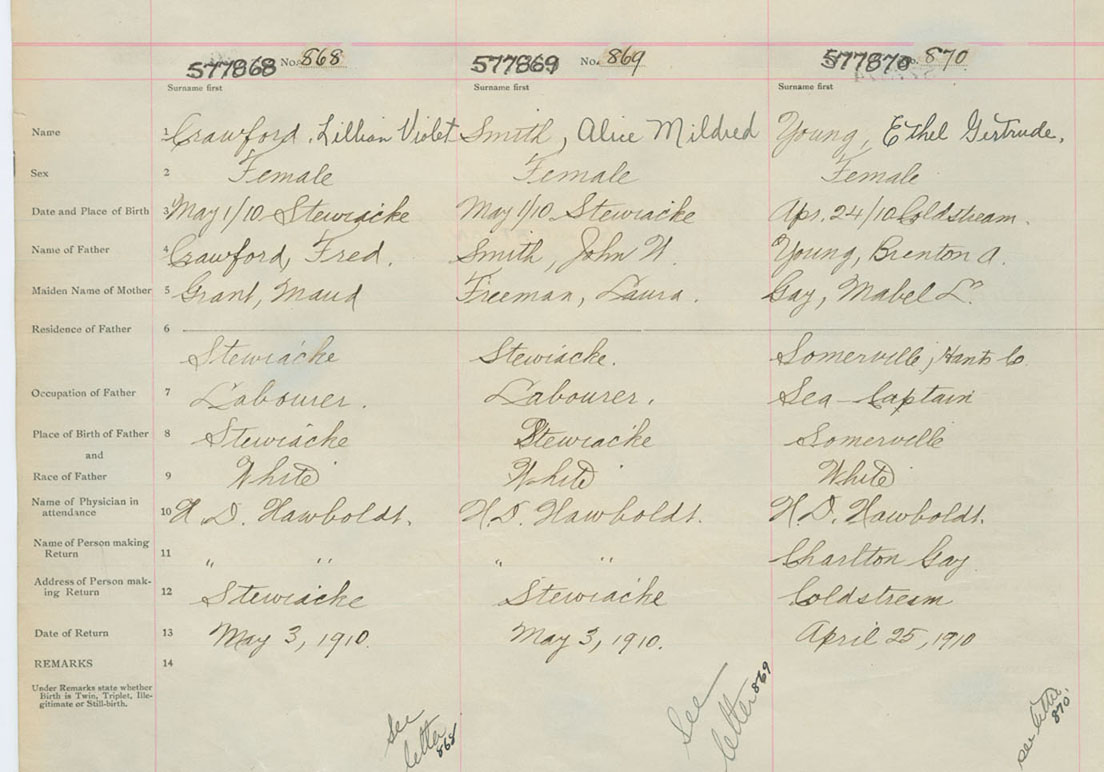 577868 No. 868 577869 No. 869 577870 No. 870
Surname first Surname first Surname first
Name 1 Crawford, Lillian Violet Smith, Alice Mildred Young, Ethel Gertrude.
Sex 2 Female Female Female
Date and Place of Birth 3 May 1/10 Stewiacke May 1/10 Stewiacke Apr. 24/10 Coldstream.
Name of Father 4 Crawford, Fred. Smith, John W. Young, Brenton A.
Maiden Name of Mother 5 Grant, Maud Freeman, Laura. Gay, Mabel L.
Residence of Father 6
Stewiacke Stewiacke. Somerville, Hants Co
Occupation of Father 7 Labourer. Labourer. Sea-Captain
Place of Birth of Father 8 Stewiacke Stewiacke Somerville
and
Race of Father 9 White White White
Name of Physician in
attendance 10 H. D. Hawboldt. H. D. Hawboldt. H. D. Hawboldt.
Name of Person making
Return 11 " " " " Charlton Gay
Address of Person mak-
ing Return 12 Stewiacke Stewiacke Coldstream
Date of Return 13 May 3, 1910. May 3, 1910. April 25, 1910
REMARKS 14
Under Remarks state whether
Birth is Twin, Triplet, Ille-
gitimate or Still-birth.
See
letter 868
See
letter 869
see letter
870